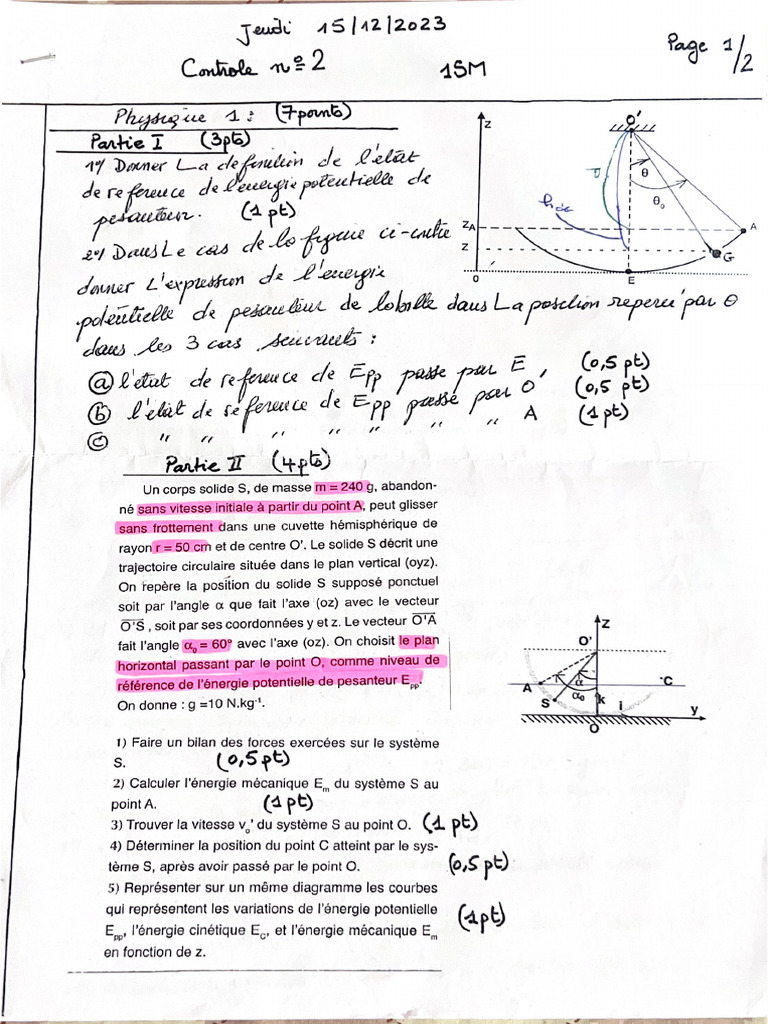 Jeudi 15/12/2023
Controle n° 2 1SM Page 1/2
Physique 1 : (7points)
Partie I (3pts)
1°/ Donner La definition de l'état
de reference de l'energie potentielle de
pesanteur. (1 pt)
2°/ Dans Le cas de la figure ci-contre
donner L'expression de l'energie
potentielle de pesanteur de la bille dans La position reperée par θ
dans les 3 cas suivants :
ⓐ l'état de reference de Epp passe par E (0,5 pt)
ⓑ l'état de reference de Epp passe par O' (0,5 pt)
ⓒ " " " " " " " A (1 pt)
z
O'
θ
θ₀
zA
A
z
G
0
E
Partie II (4pts)
Un corps solide S, de masse m = 240 g, abandon-
né sans vitesse initiale à partir du point A, peut glisser
sans frottement dans une cuvette hémisphérique de
rayon r = 50 cm et de centre O'. Le solide S décrit une
trajectoire circulaire située dans le plan vertical (oyz).
On repère la position du solide S supposé ponctuel
soit par l'angle α que fait l'axe (oz) avec le vecteur
O'S , soit par ses coordonnées y et z. Le vecteur O'A
fait l'angle α₀ = 60° avec l'axe (oz). On choisit le plan
horizontal passant par le point O, comme niveau de
référence de l'énergie potentielle de pesanteur Epp.
On donne : g =10 N.kg⁻¹.
z
O'
A
S
α
α₀
C
k
i
y
O
1) Faire un bilan des forces exercées sur le système
S. (0,5 pt)
2) Calculer l'énergie mécanique Em du système S au
point A. (1 pt)
3) Trouver la vitesse vo' du système S au point O. (1 pt)
4) Déterminer la position du point C atteint par le sys-
tème S, après avoir passé par le point O. (0,5 pt)
5) Représenter sur un même diagramme les courbes
qui représentent les variations de l'énergie potentielle
Epp, l'énergie cinétique EC, et l'énergie mécanique Em (1pt)
en fonction de z.